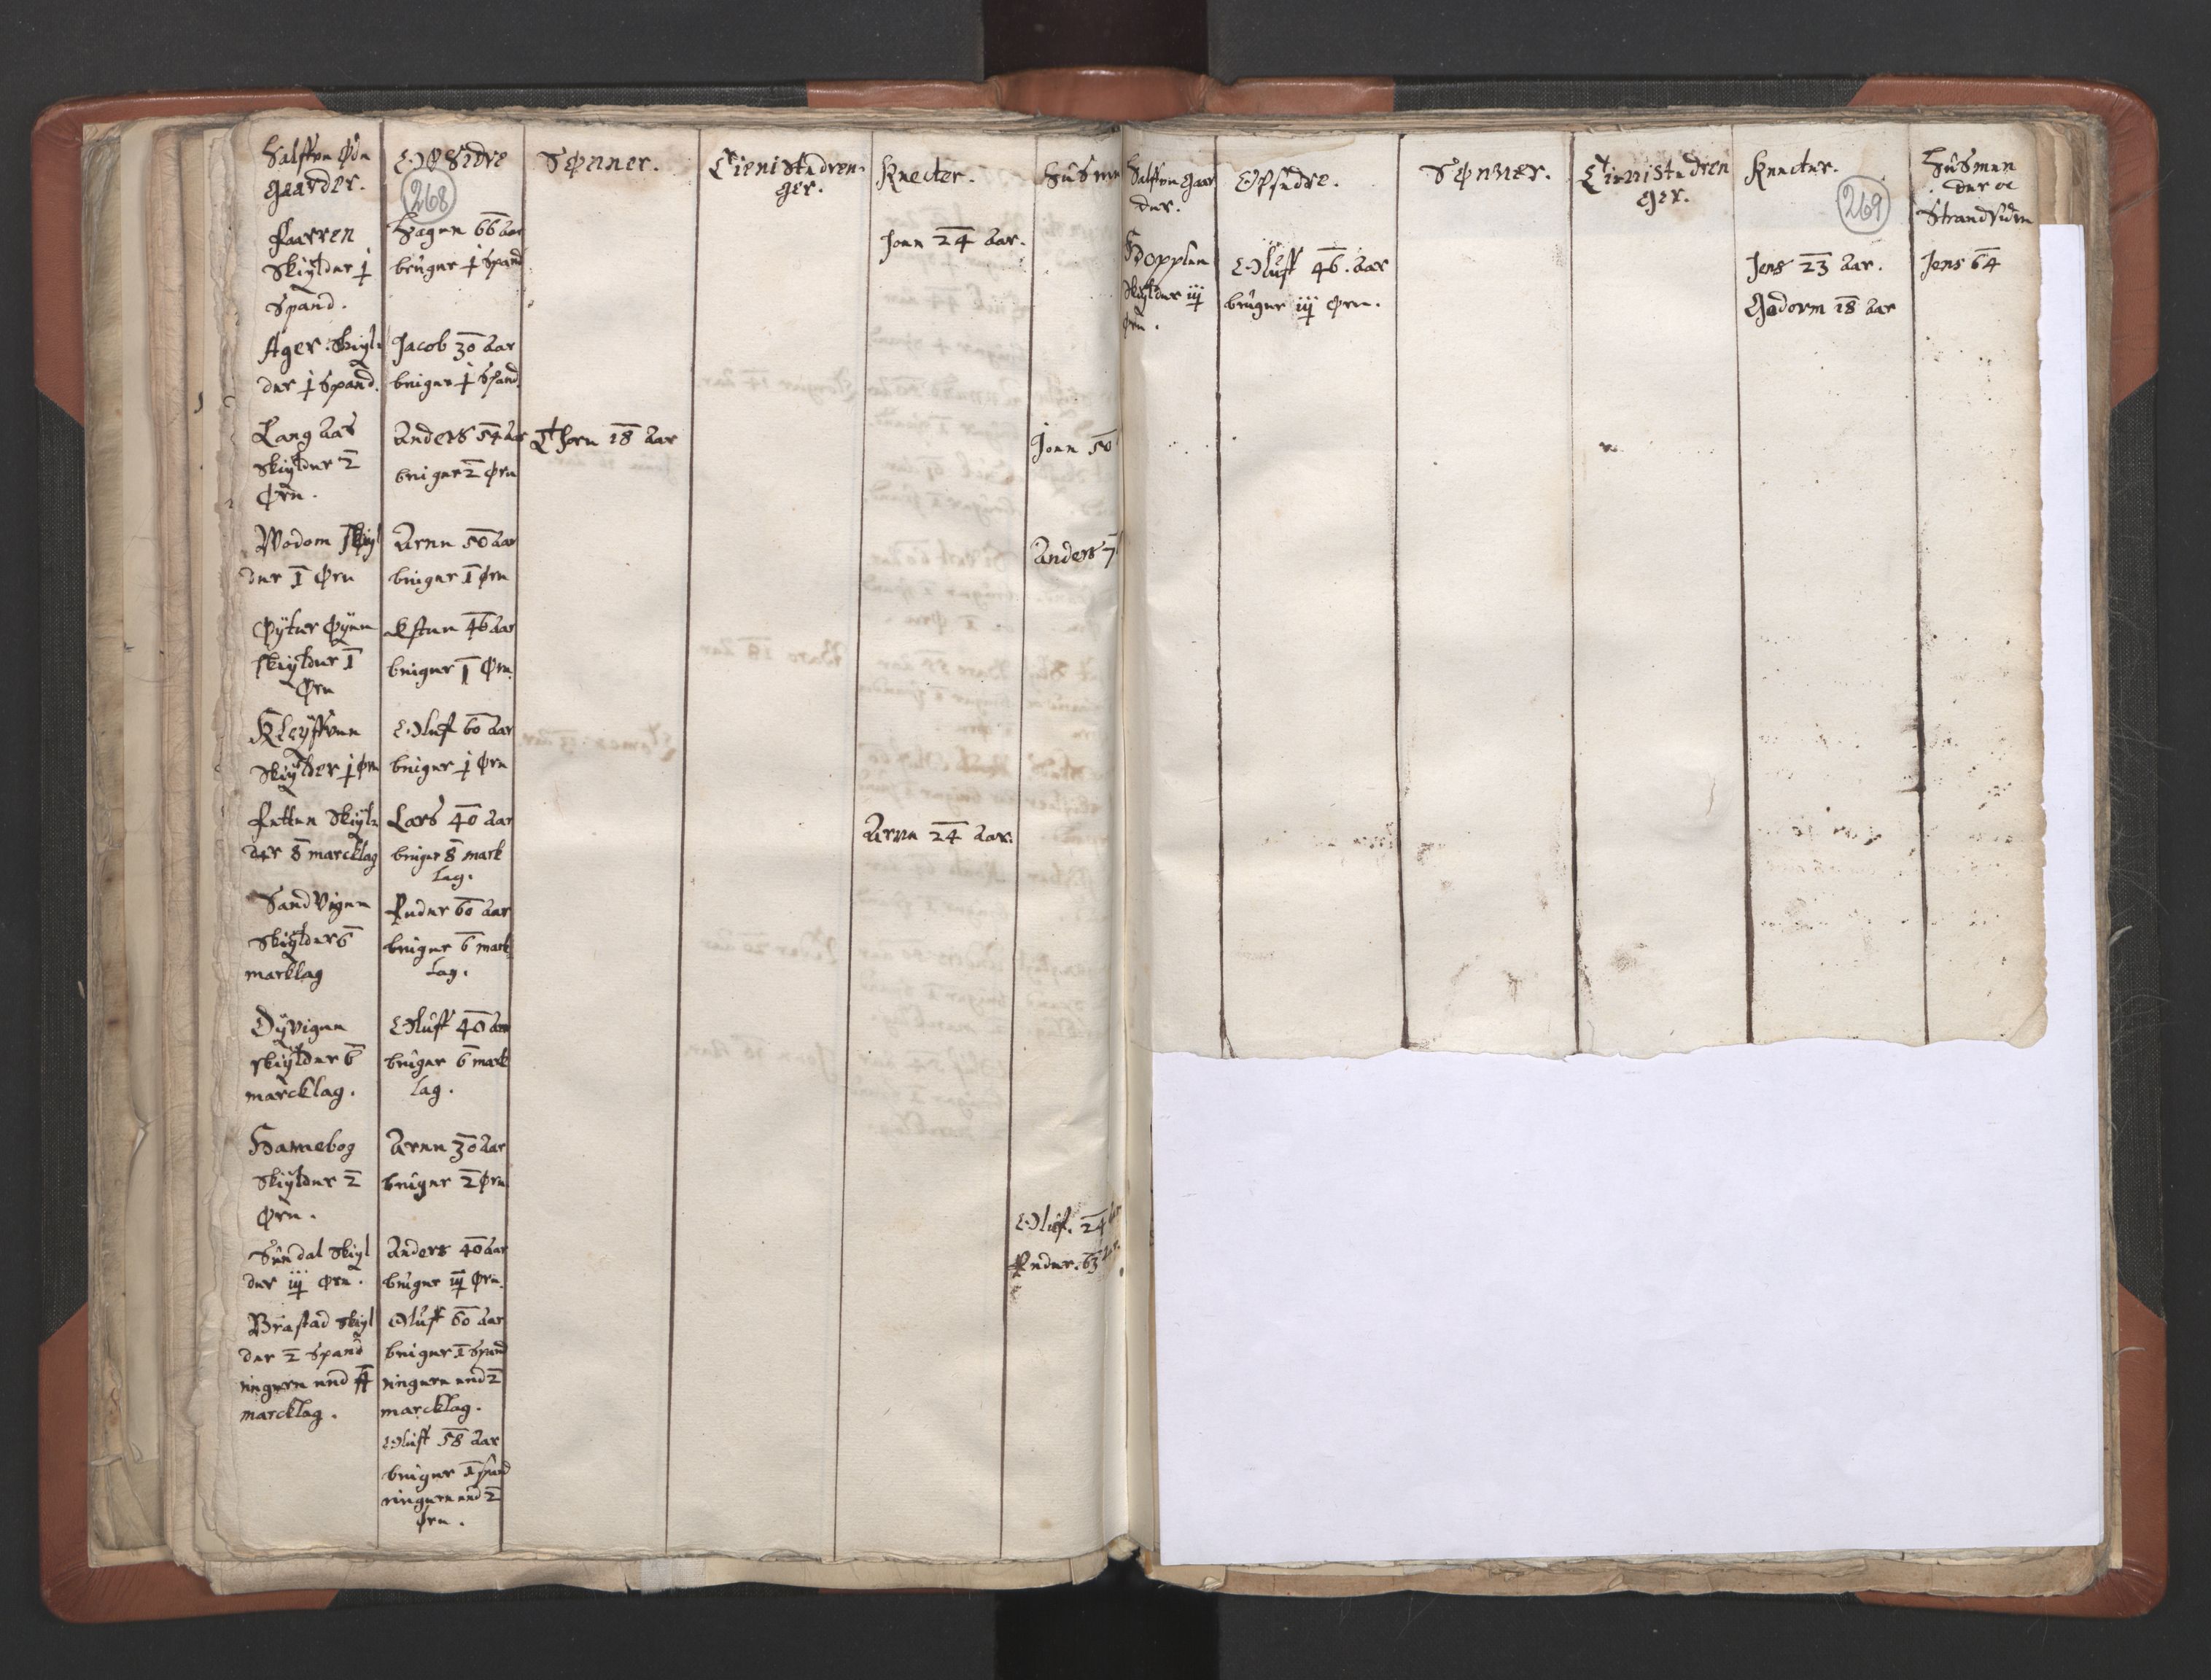 Halffue Øde
gaarder.
Opsidre
268
Sønner.
Tienistedren-
ger.
Knecter.
Hüsme
Faarren
Skÿlder j
Spand.
Hagen 66 aar
brüger j Spand
Jonn 24 aar.
Ager Skyl-
der j Spand.
Jacob 30 Aar
bruger j Spand
Lang Aas
Skÿlder 2
Øre.
Anders 54 Aar
bruger 2 Øre
Thoru 18 Aar
Jonn 50
Wodom Skÿl
der 1 Øre
Arnn 50 Aar
bruger 1 Øre
Anders 7
Øÿter Øÿenn
skÿlder 1
Øre
46 Aar
bruger 1 Øre.
Kleÿffuen
Skÿlder j Øre
Oluf 60 Aar
bruger j Øre
Fetten Skÿl-
der 8 marcklag
Lars 40 Aar
bruger 8 mark
Lag.
Arnn 24 Aar.
Sandvigen
Skÿlder 6
marklag
Peder 60 Aar
bruger 6 mark
Lag.
Dÿvigen
skÿlder 6
marcklag.
Oluff 40 Aar
brüger 6 mark
Lag.
Hamebog
Skÿlder 2
Øre.
Arnn 30 Aar
brüger 2 Øre
Sündal Skÿl
der iij Øre.
Anders 40 Aar
brüger iij Øre.
Oluf. 24
Peder. 63
Brastad Skÿl
der 2 Spand
ringere end
marcklag.
Oluff 60 Aar
bruger 1 Spand
ringere end 2
marcklag.
Oluff 58 Aar
bruger 1 spand
ringere end 2
Øre.
Halffue Gaar
der.
Opsedre.
Sønner.
Tienistedren
ger.
Knecter.
269
Hüsmen
der oc
Strandsidere
Hopplen
Skÿlder iij
Øre.
Oluff 46. Aar
brüger iij Øre.
Jens 23 Aar.
Gudorm 18 Aar
Jens 64